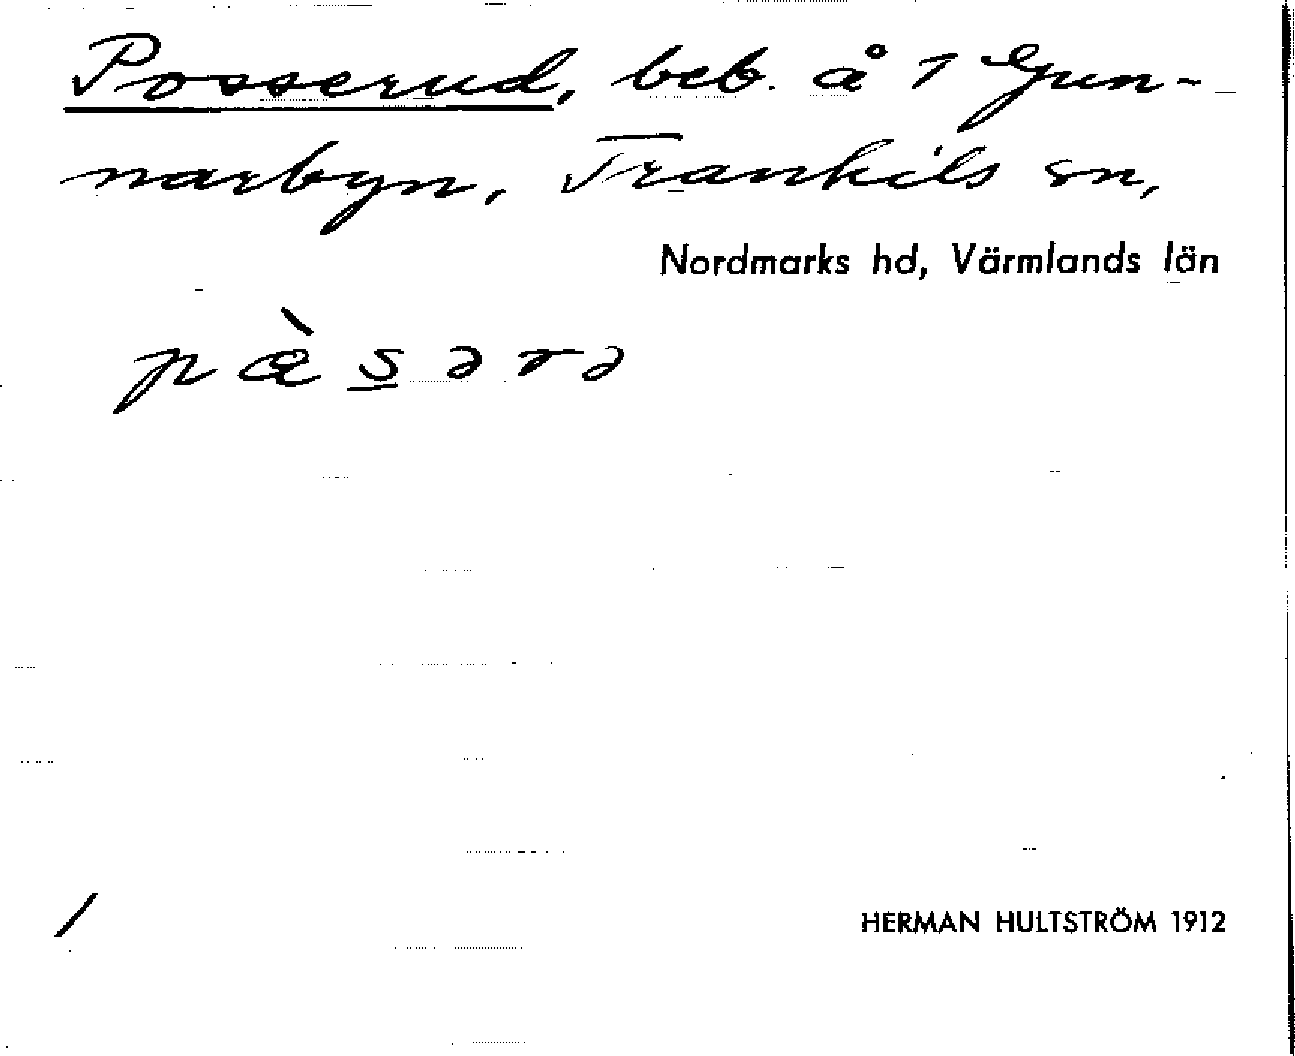 Posserud, beb. å 1 Gun-
narbyn, Trankils sn,
Nordmarks hd, Värmlands län
pæ̀s̲ərə
/
HERMAN HULTSTRÖM 1912